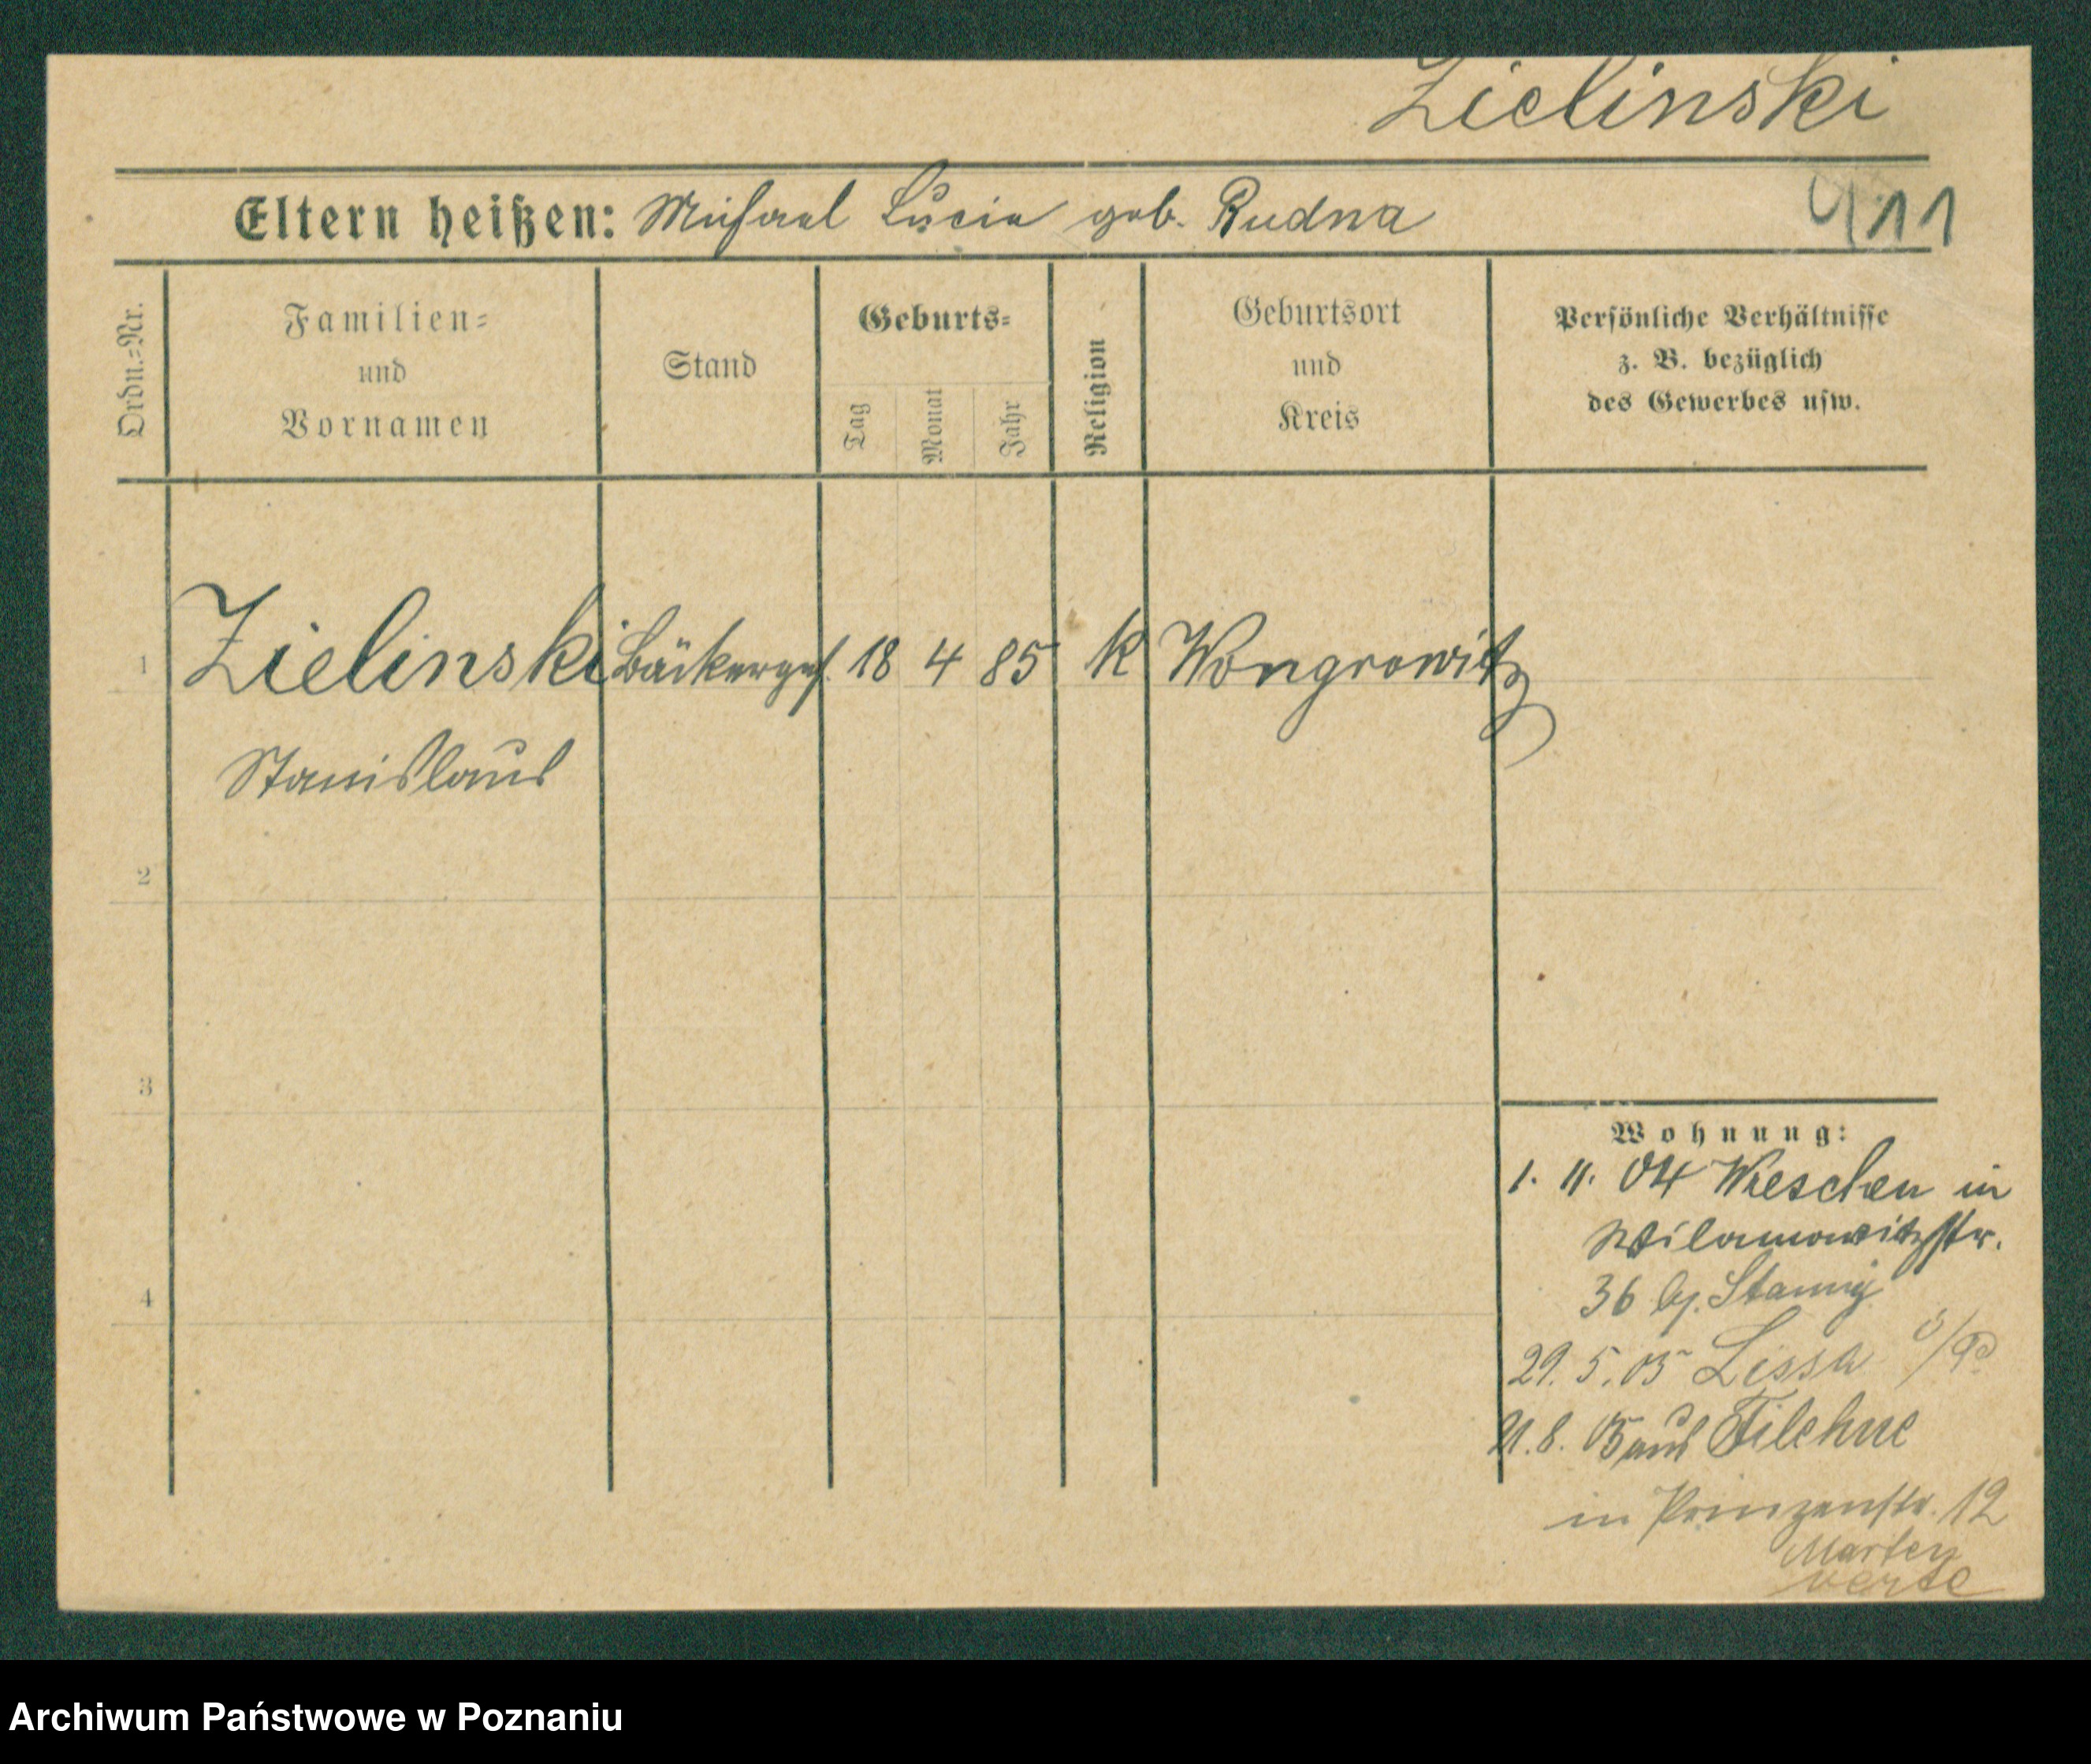 Zielinski
Eltern heißen: Michael Lucia geb. Rudna
911
Ordn.=Nr.
Familien=
und
Vornamen
Stand
Geburts=
Tag
Monat
Jahr
Religion
Geburtsort
und
Kreis
Persönliche Verhältnisse
z. B. bezüglich
des Gewerbes usw.
1 Zielinski Bäckerges. 18 4 85 K Wongrowitz
Stanislaus
2
3
4
Wohnung:
1. 11. 04 Wreschen in
Wilamowitzstr.
36 bj.
29. 5. 05 Lissa i/P
21. 8. 05 aus Filehne
in Prinzenstr. 12
Archiwum Państwowe w Poznaniu